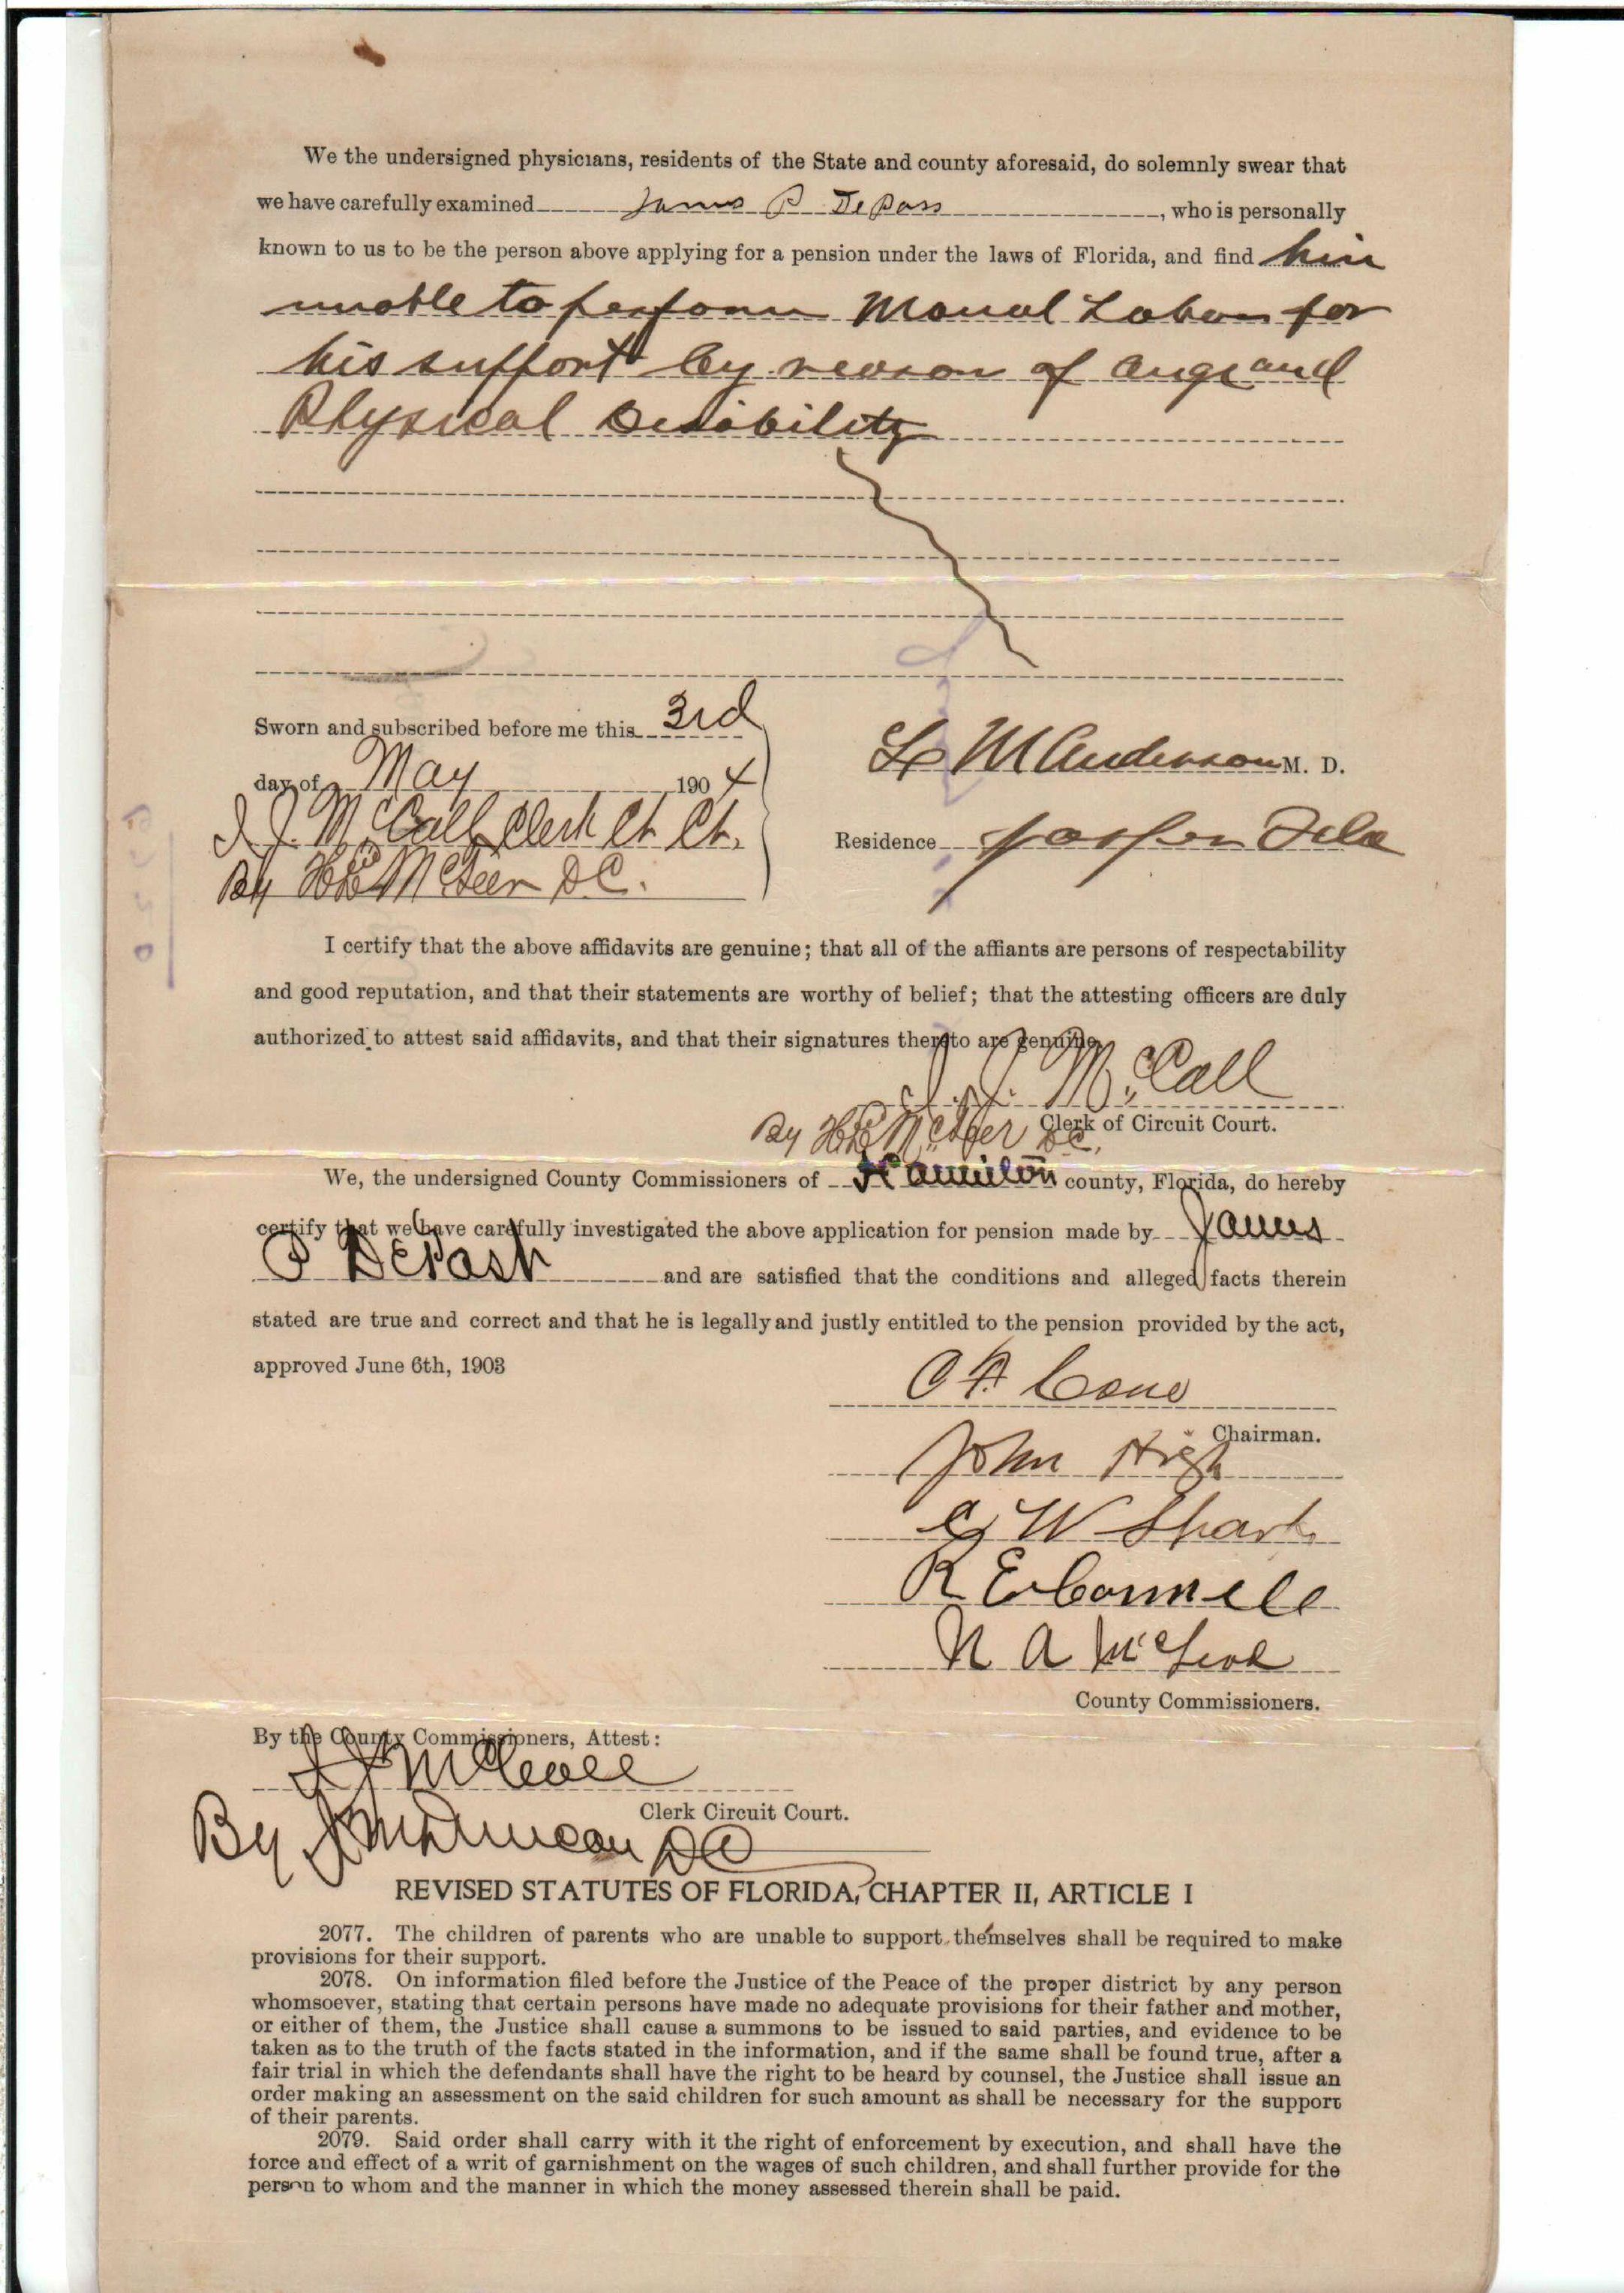 We the undersigned physicians, residents of the State and county aforesaid, do solemnly swear that
we have carefully examined James P DePass, who is personally
known to us to be the person above applying for a pension under the laws of Florida, and find him
unable to perform Manual Labor for
his support by reason of age and
Physical Disability
Sworn and subscribed before me this 3rd
day of May 1904
J. J. McCall Clerk Ct Ct.
By D.C.
L M Anderson M. D.
Residence Jasper Fla
I certify that the above affidavits are genuine; that all of the affiants are persons of respectability
and good reputation, and that their statements are worthy of belief; that the attesting officers are duly
authorized to attest said affidavits, and that their signatures thereto are genuine.
J. J. McCall
Clerk of Circuit Court.
By D.C.
We, the undersigned County Commissioners of Hamilton county, Florida, do hereby
certify that we have carefully investigated the above application for pension made by James
P DePass and are satisfied that the conditions and alleged facts therein
stated are true and correct and that he is legally and justly entitled to the pension provided by the act,
approved June 6th, 1903
Cone
Chairman.
John High
W
R E Connell
N A McLeod
County Commissioners.
By the County Commissioners, Attest:
J J McCall
Clerk Circuit Court.
By J M Duncan DC
REVISED STATUTES OF FLORIDA, CHAPTER II, ARTICLE I
2077. The children of parents who are unable to support themselves shall be required to make
provisions for their support.
2078. On information filed before the Justice of the Peace of the proper district by any person
whomsoever, stating that certain persons have made no adequate provisions for their father and mother,
or either of them, the Justice shall cause a summons to be issued to said parties, and evidence to be
taken as to the truth of the facts stated in the information, and if the same shall be found true, after a
fair trial in which the defendants shall have the right to be heard by counsel, the Justice shall issue an
order making an assessment on the said children for such amount as shall be necessary for the support
of their parents.
2079. Said order shall carry with it the right of enforcement by execution, and shall have the
force and effect of a writ of garnishment on the wages of such children, and shall further provide for the
person to whom and the manner in which the money assessed therein shall be paid.